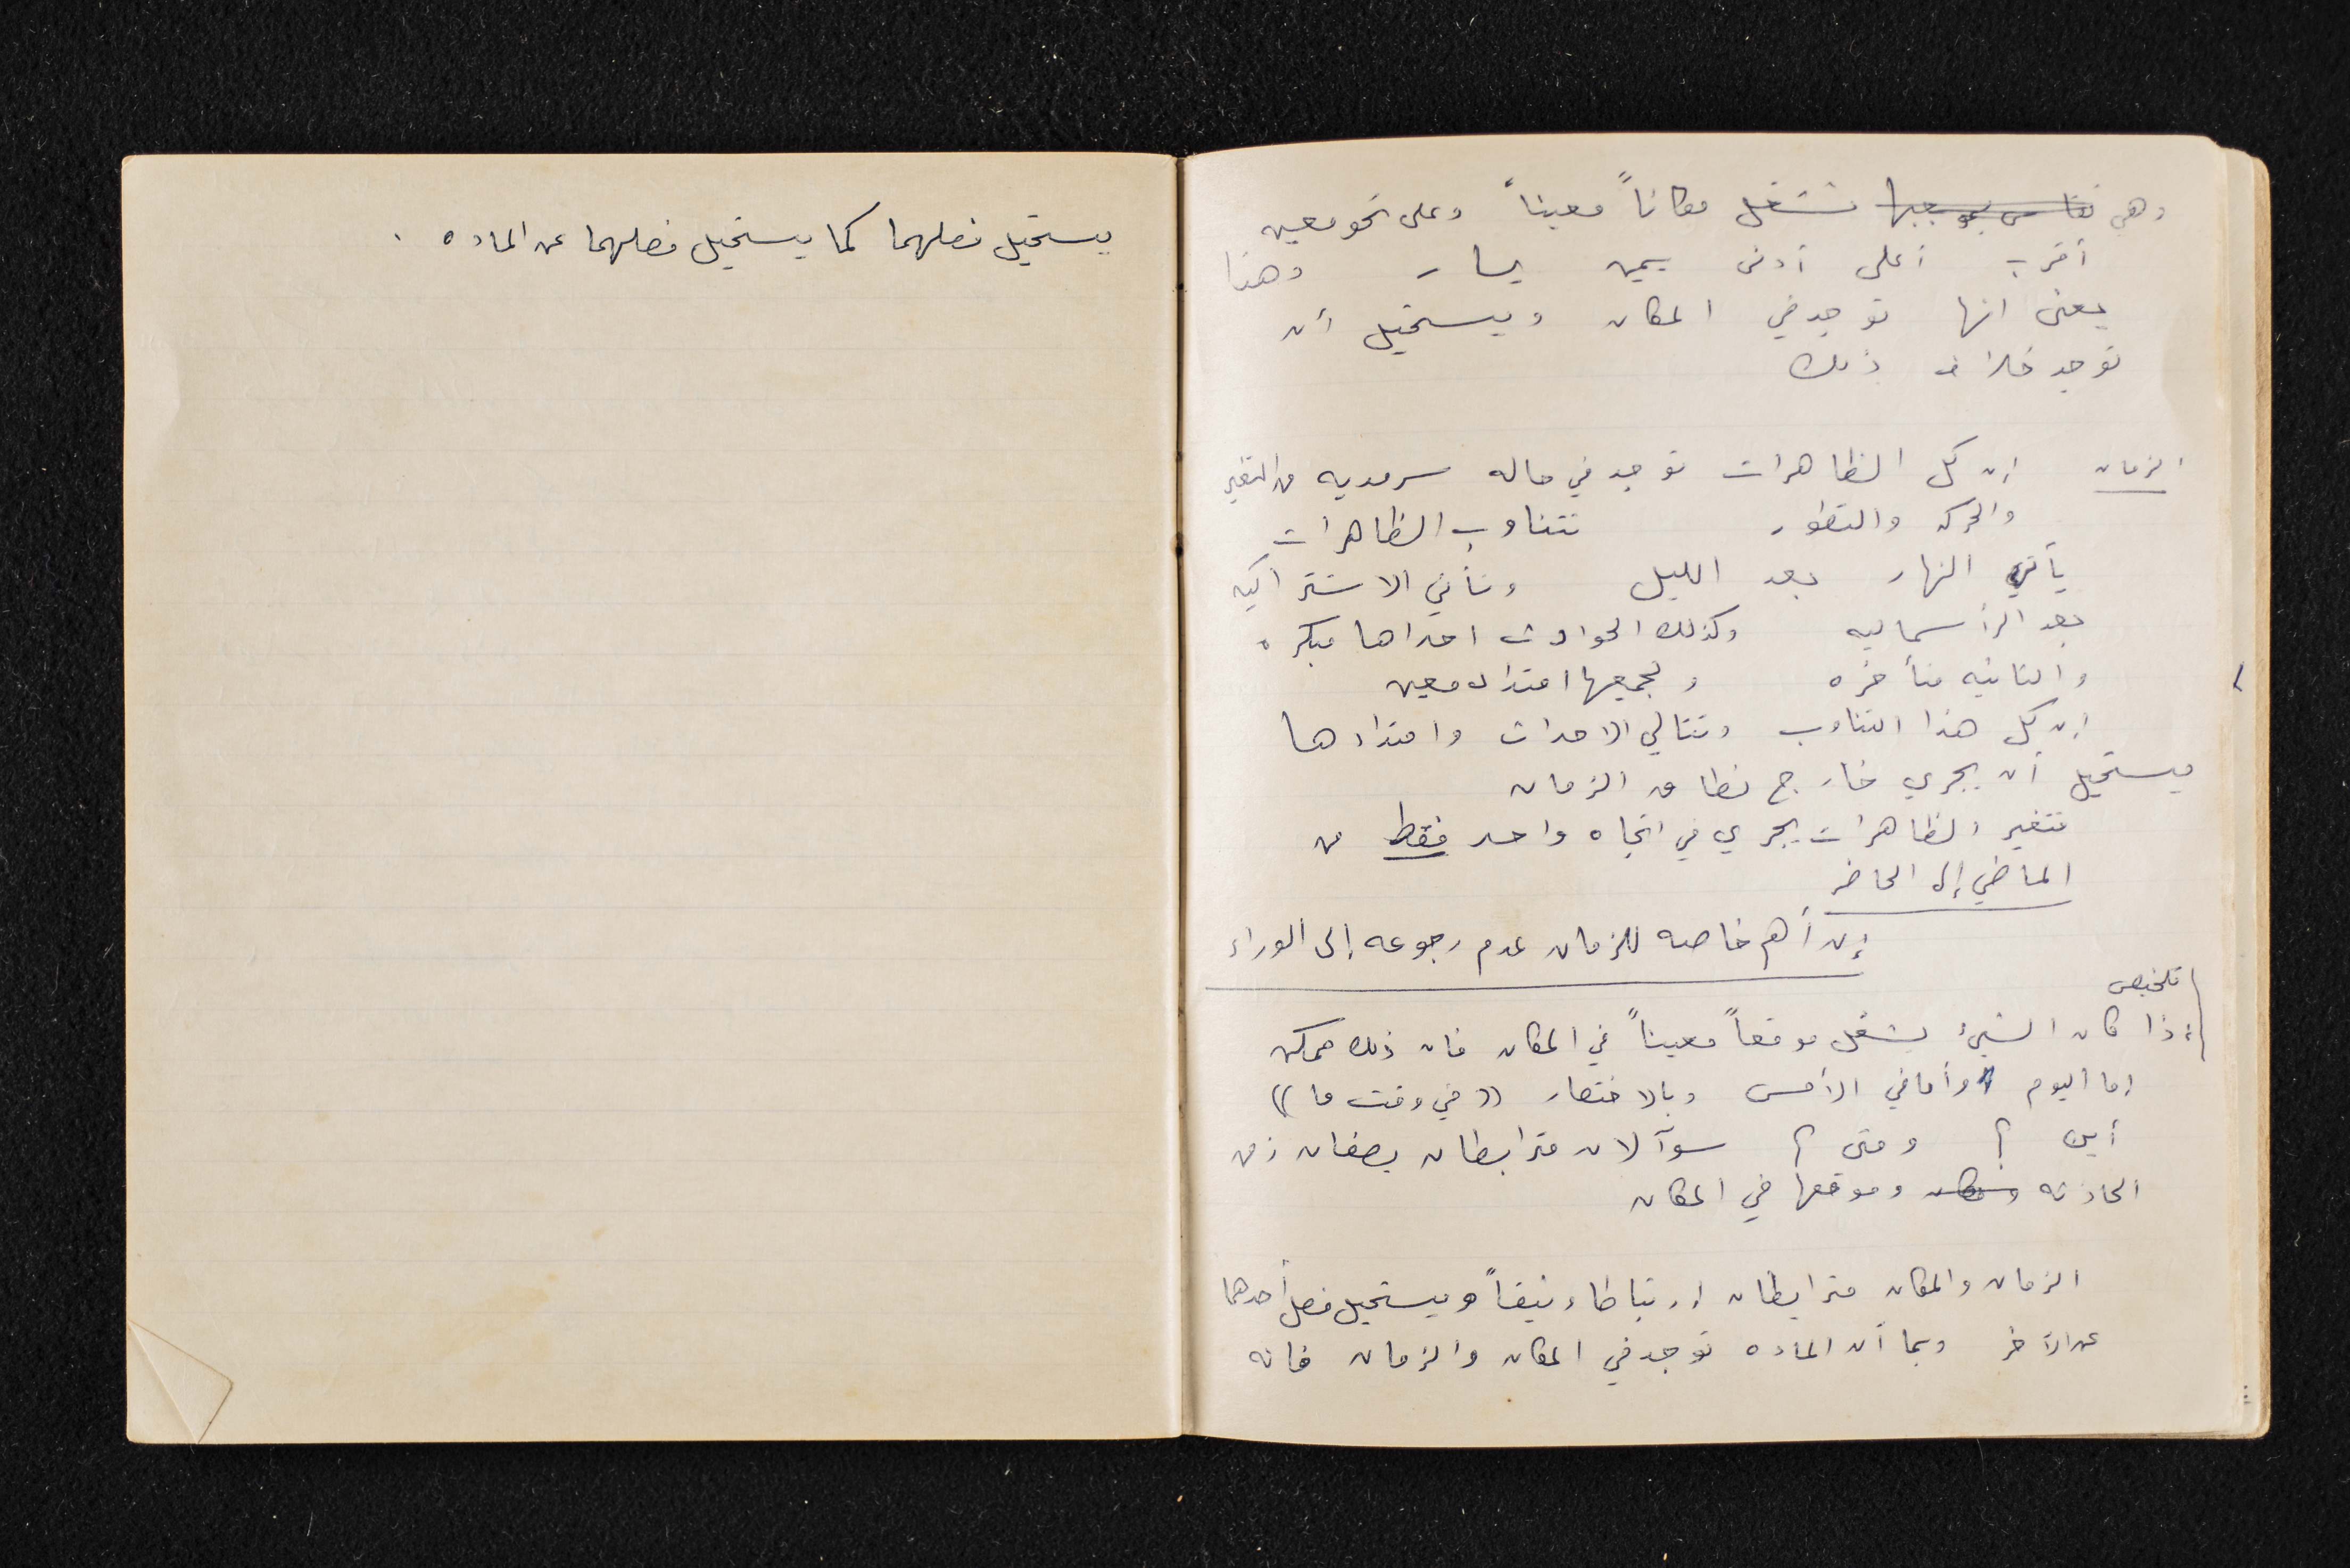 وهي تقاس بموجبها تشغل مكاناً معيناً وعلى نحو معين
أقرب أعلى أدنى يمين يسار وهذا
يعني انها توجد في المكان ويستحيل أن
توجد خلاف ذلك
الزمان إن كل الظاهرات توجد في حاله سرمديه من التغير
والحركه والتطور تتناوب الظاهرات
يأتي النهار بعد الليل وتأتي الاشتراكيه
بعد الرأسماليه وكذلك الحوادث احداها مبكره
والثانيه متأخره ولجميعها امتداد معين
إن كل هذا التناوب وتتالي الاحداث وامتدادها
يستحيل أن يجري خارج نطاق الزمان
فتغير الظاهرات يجري في اتجاه واحد فقط من
الماضي إلى الحاضر
إن أهم خاصه للزمان عدم رجوعه إلى الوراء
تلخيص
إذا كان الشيئ يشغل موقعاً معيناً في المكان فان ذلك ممكن
إما اليوم وأما في الأمس وبالاختصار ((في وقت ما))
أين ؟ ومتى ؟ سوآلان مترابطان يصفان زمن
الحادثه ومكان وموقعها في المكان
الزمان والمكان مترابطان إرتباطا وثيقاً ويستحيل فصل أحدهما
عن الآخر وبما أن الماده توجد في المكان والزمان فانه
يستحيل فصلهما كما يستحيل فصلهما عن الماده .